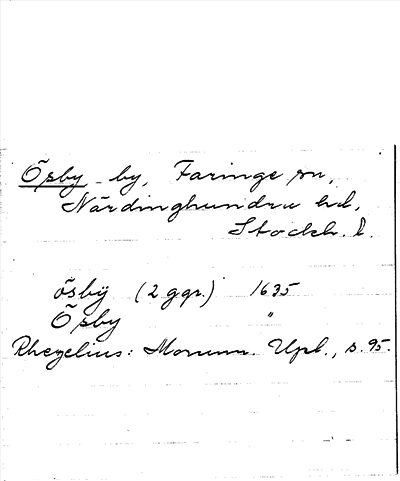 Ösby - by, Faringe sn,
Närdinghundra hd,
Stockh. l.
ösbÿ (2 ggr.) 1635
Ösby "
Rhezelius: Monum. Upl., s. 95.